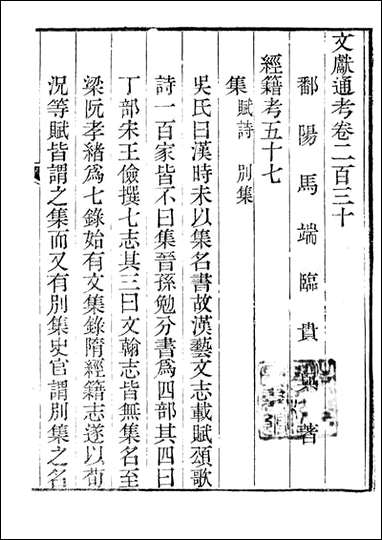 文獻通考卷二百三十
鄱陽馬端臨貴與著
經籍考五十七
集賦詩 別集
吳氏曰漢時未以集名書故漢藝文志載賦頌歌
詩一百家皆不曰集晉孫勉分書為四部其四曰
丁部宋王儉撰七志其三曰文翰志皆無集名至
梁阮孝緒為七錄始有文集錄隋經籍志遂以荀
況等賦皆謂之集而又有別集史官謂別集之名